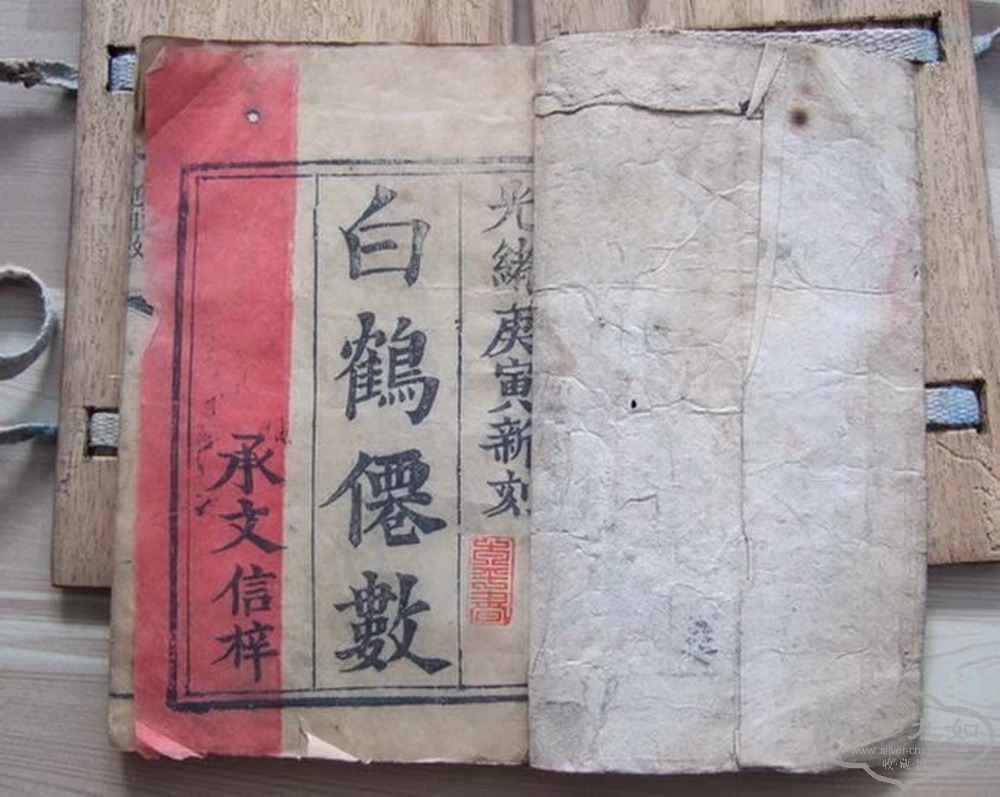 光緒庚寅新刻
白鶴僊數
承文信梓
www.silver-chi